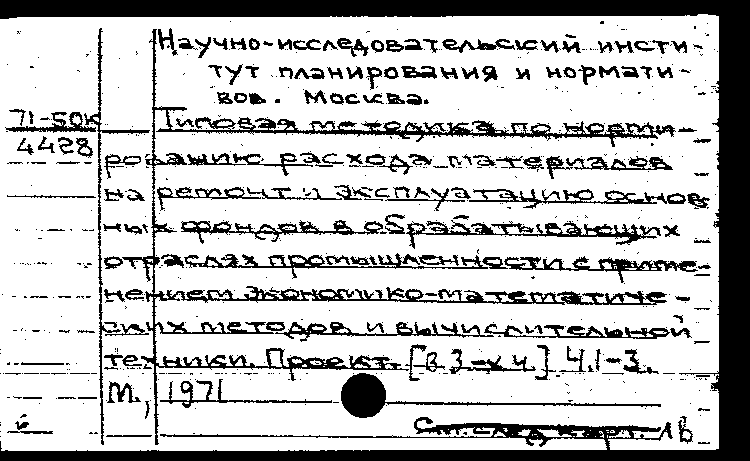 Научно-исследовательский инсти-
тут планирования и нормати-
вов. Москва.
71-50к
4428
Типовая методика по норми-
рованию расхода материалов
на ремонт и эксплуатацию основ-
ных фондов в обрабатывающих
отраслях промышленности с приме-
нением экономико-математиче-
ских методов и вычислительной
техники. Проект. [В 3-х ч.] Ч.1-3.
М., 1971
См. след карт. 1В